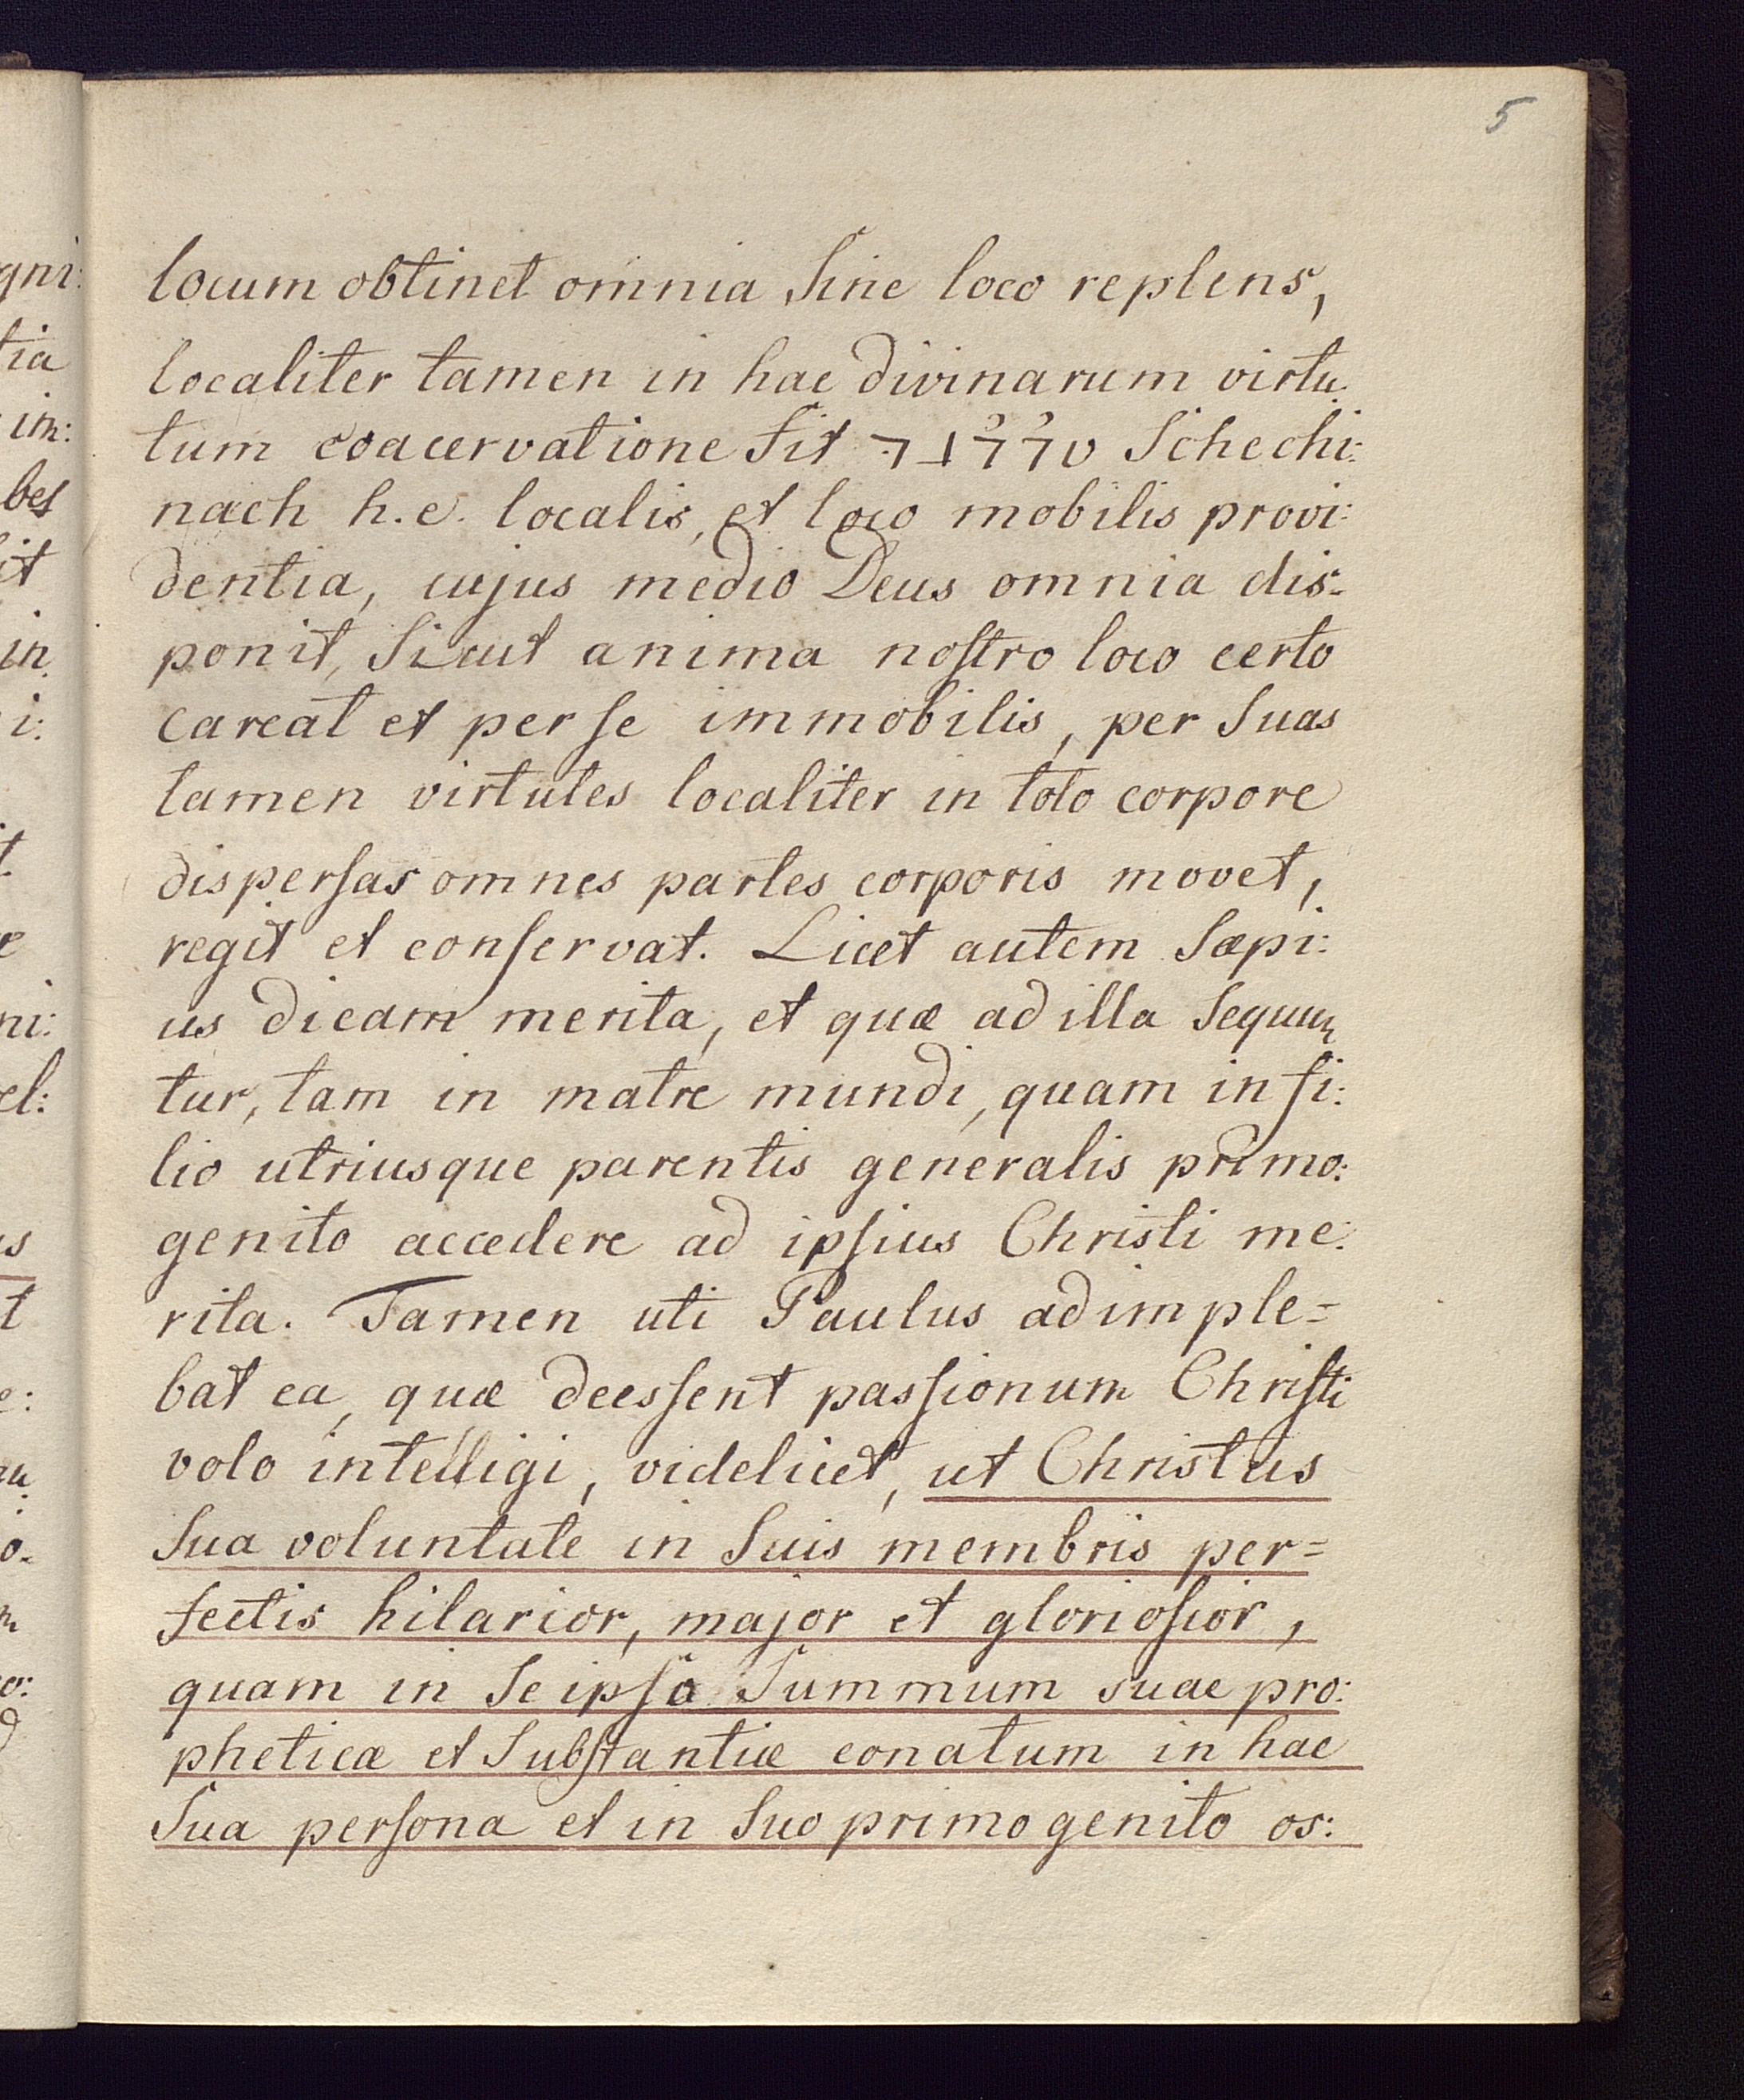 5
locum obtinet omnia ſine loco replens,
localiter tamen in hac divinarum virtu
tum coacervatione fit Schechi:
nach h. e. localis, et loco mobilis provi:
dentia, cujus medio Deus omnia dis=
ponit, Sicut anima noſtro loco certo
careat et per ſe immobilis, per Suas
tamen virtutes localiter in toto corpore
disperſas omnes partes corporis movet,
regit et conſervat. Licet autem Sæpi:
us dicam merita, et quæ ad illa Sequun
tur, tam in matre mundi, quam in fi:
lio utriusque parentis generalis primo:
genito accedere ad ipſius Christi me:
rita. Tamen uti Paulus adimple=
bat ea, quæ deesſent pasſionum Chriſti
volo intelligi, videlicet, ut Christus
Sua voluntate in Suis membris per=
fectis hilarior, major et glorioſior,
quam in Se ipſo Summum suae pro:
pheticæ et Subſtantiæ conatum in hac
Sua perſona et in Suo primo genito os: